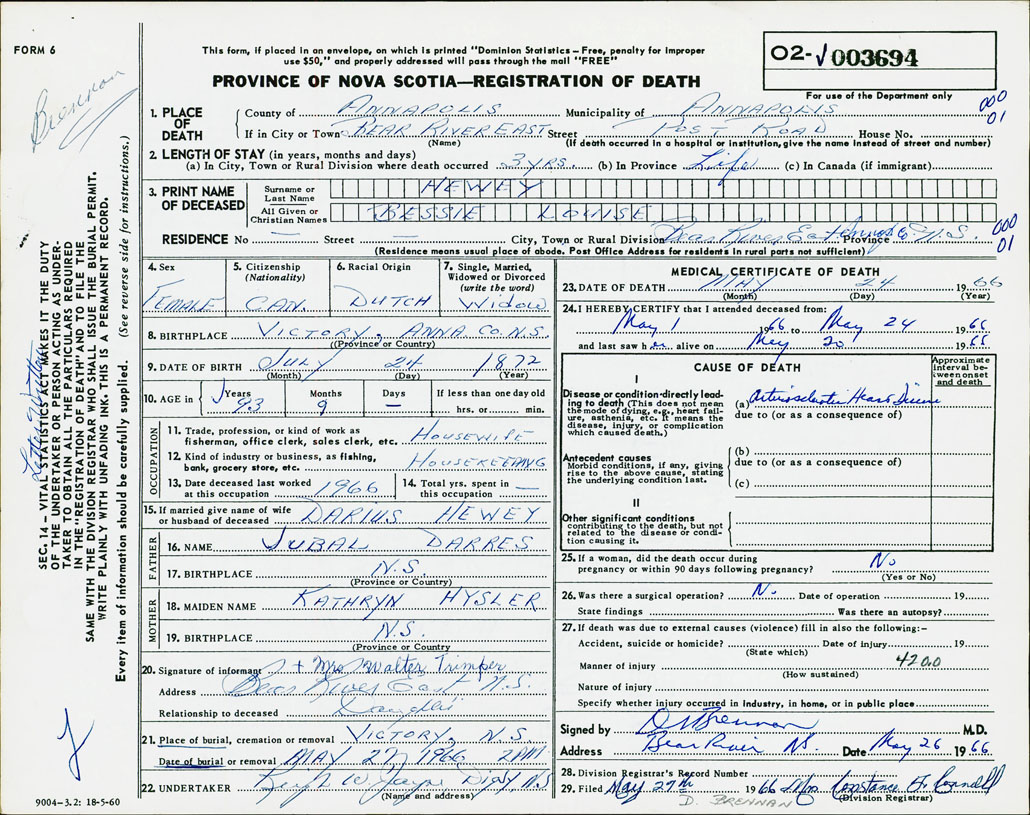 FORM 6
This form, if placed in an envelope, on which is printed "Dominion Statistics – Free, penalty for improper
use $50," and properly addressed will pass through the mail "FREE"
PROVINCE OF NOVA SCOTIA—REGISTRATION OF DEATH
02-√003694
For use of the Department only
Brennan
1. PLACE OF DEATH
County of ANNAPOLIS Municipality of ANNAPOLIS
000
01
If in City or Town BEAR RIVER EAST Street POST ROAD House No.
(Name) (If death occurred in a hospital or institution, give the name instead of street and number)
2. LENGTH OF STAY (in years, months and days)
(a) In City, Town or Rural Division where death occurred 3 yrs. (b) In Province Life (c) In Canada (if immigrant)
3. PRINT NAME OF DECEASED
Surname or Last Name HEWEY
All Given or Christian Names BESSIE LOUISE
RESIDENCE No — Street — City, Town or Rural Division Bear River East Province N.S.
000
01
(Residence means usual place of abode. Post Office Address for residents in rural parts not sufficient)
4. Sex FEMALE
5. Citizenship (Nationality) CAN.
6. Racial Origin DUTCH
7. Single, Married, Widowed or Divorced (write the word) Widow
8. BIRTHPLACE VICTORY, ANNA. CO. N.S.
(Province or Country)
9. DATE OF BIRTH July 24 1872
(Month) (Day) (Year)
10. AGE in Years 93 Months 9 Days — If less than one day old hrs. or min.
OCCUPATION
11. Trade, profession, or kind of work as fisherman, office clerk, sales clerk, etc. HOUSEWIFE
12. Kind of industry or business, as fishing, bank, grocery store, etc. HOUSEKEEPING
13. Date deceased last worked at this occupation 1966
14. Total yrs. spent in this occupation —
15. If married give name of wife or husband of deceased DARIUS HEWEY
FATHER
16. NAME JUBAL DARRES
17. BIRTHPLACE N.S.
(Province or Country)
MOTHER
18. MAIDEN NAME KATHRYN HYSLER
19. BIRTHPLACE N.S.
(Province or Country)
20. Signature of informant + Mrs Walter Trimper
Address Bear River East, N.S.
Relationship to deceased Daughter
21. Place of burial, cremation or removal VICTORY, N.S.
Date of burial or removal MAY 27, 1966 2 PM
22. UNDERTAKER Digby, N.S
(Name and address)
MEDICAL CERTIFICATE OF DEATH
23. DATE OF DEATH MAY 24 1966
(Month) (Day) (Year)
24. I HEREBY CERTIFY that I attended deceased from:
May 1 1966 to May 24 1966
and last saw her alive on May 20 1966
CAUSE OF DEATH
Approximate interval between onset and death
I
Disease or condition directly leading to death (This does not mean the mode of dying, e.g., heart failure, asthenia, etc. It means the disease, injury, or complication which caused death.)
(a) Arteriosclerotic Heart Disease
due to (or as a consequence of)
Antecedent causes
Morbid conditions, if any, giving rise to the above cause, stating the underlying condition last.
(b)
due to (or as a consequence of)
(c)
II
Other significant conditions
contributing to the death, but not related to the disease or condition causing it.
25. If a woman, did the death occur during pregnancy or within 90 days following pregnancy? No
(Yes or No)
26. Was there a surgical operation? No. Date of operation 19
State findings Was there an autopsy?
27. If death was due to external causes (violence) fill in also the following:–
Accident, suicide or homicide? Date of injury 19
(State which)
Manner of injury 4200
(How sustained)
Nature of injury
Specify whether injury occurred in industry, in home, or in public place
Signed by Brennan M.D.
Address Bear River NS. Date May 26 1966
28. Division Registrar's Record Number
29. Filed May 27th 1966 Mrs Constance
(Division Registrar)
D. BRENNAN
SEC. 14 – VITAL STATISTICS ACT MAKES IT THE DUTY
OF THE UNDERTAKER OR PERSON ACTING AS UNDER-
TAKER TO OBTAIN ALL THE PARTICULARS REQUIRED
IN THE "REGISTRATION OF DEATH" AND TO FILE THE
SAME WITH THE DIVISION REGISTRAR WHO SHALL ISSUE THE BURIAL PERMIT.
WRITE PLAINLY WITH UNFADING INK. THIS IS A PERMANENT RECORD.
Every item of information should be carefully supplied. (See reverse side for instructions.)
9004-3.2: 18-5-60